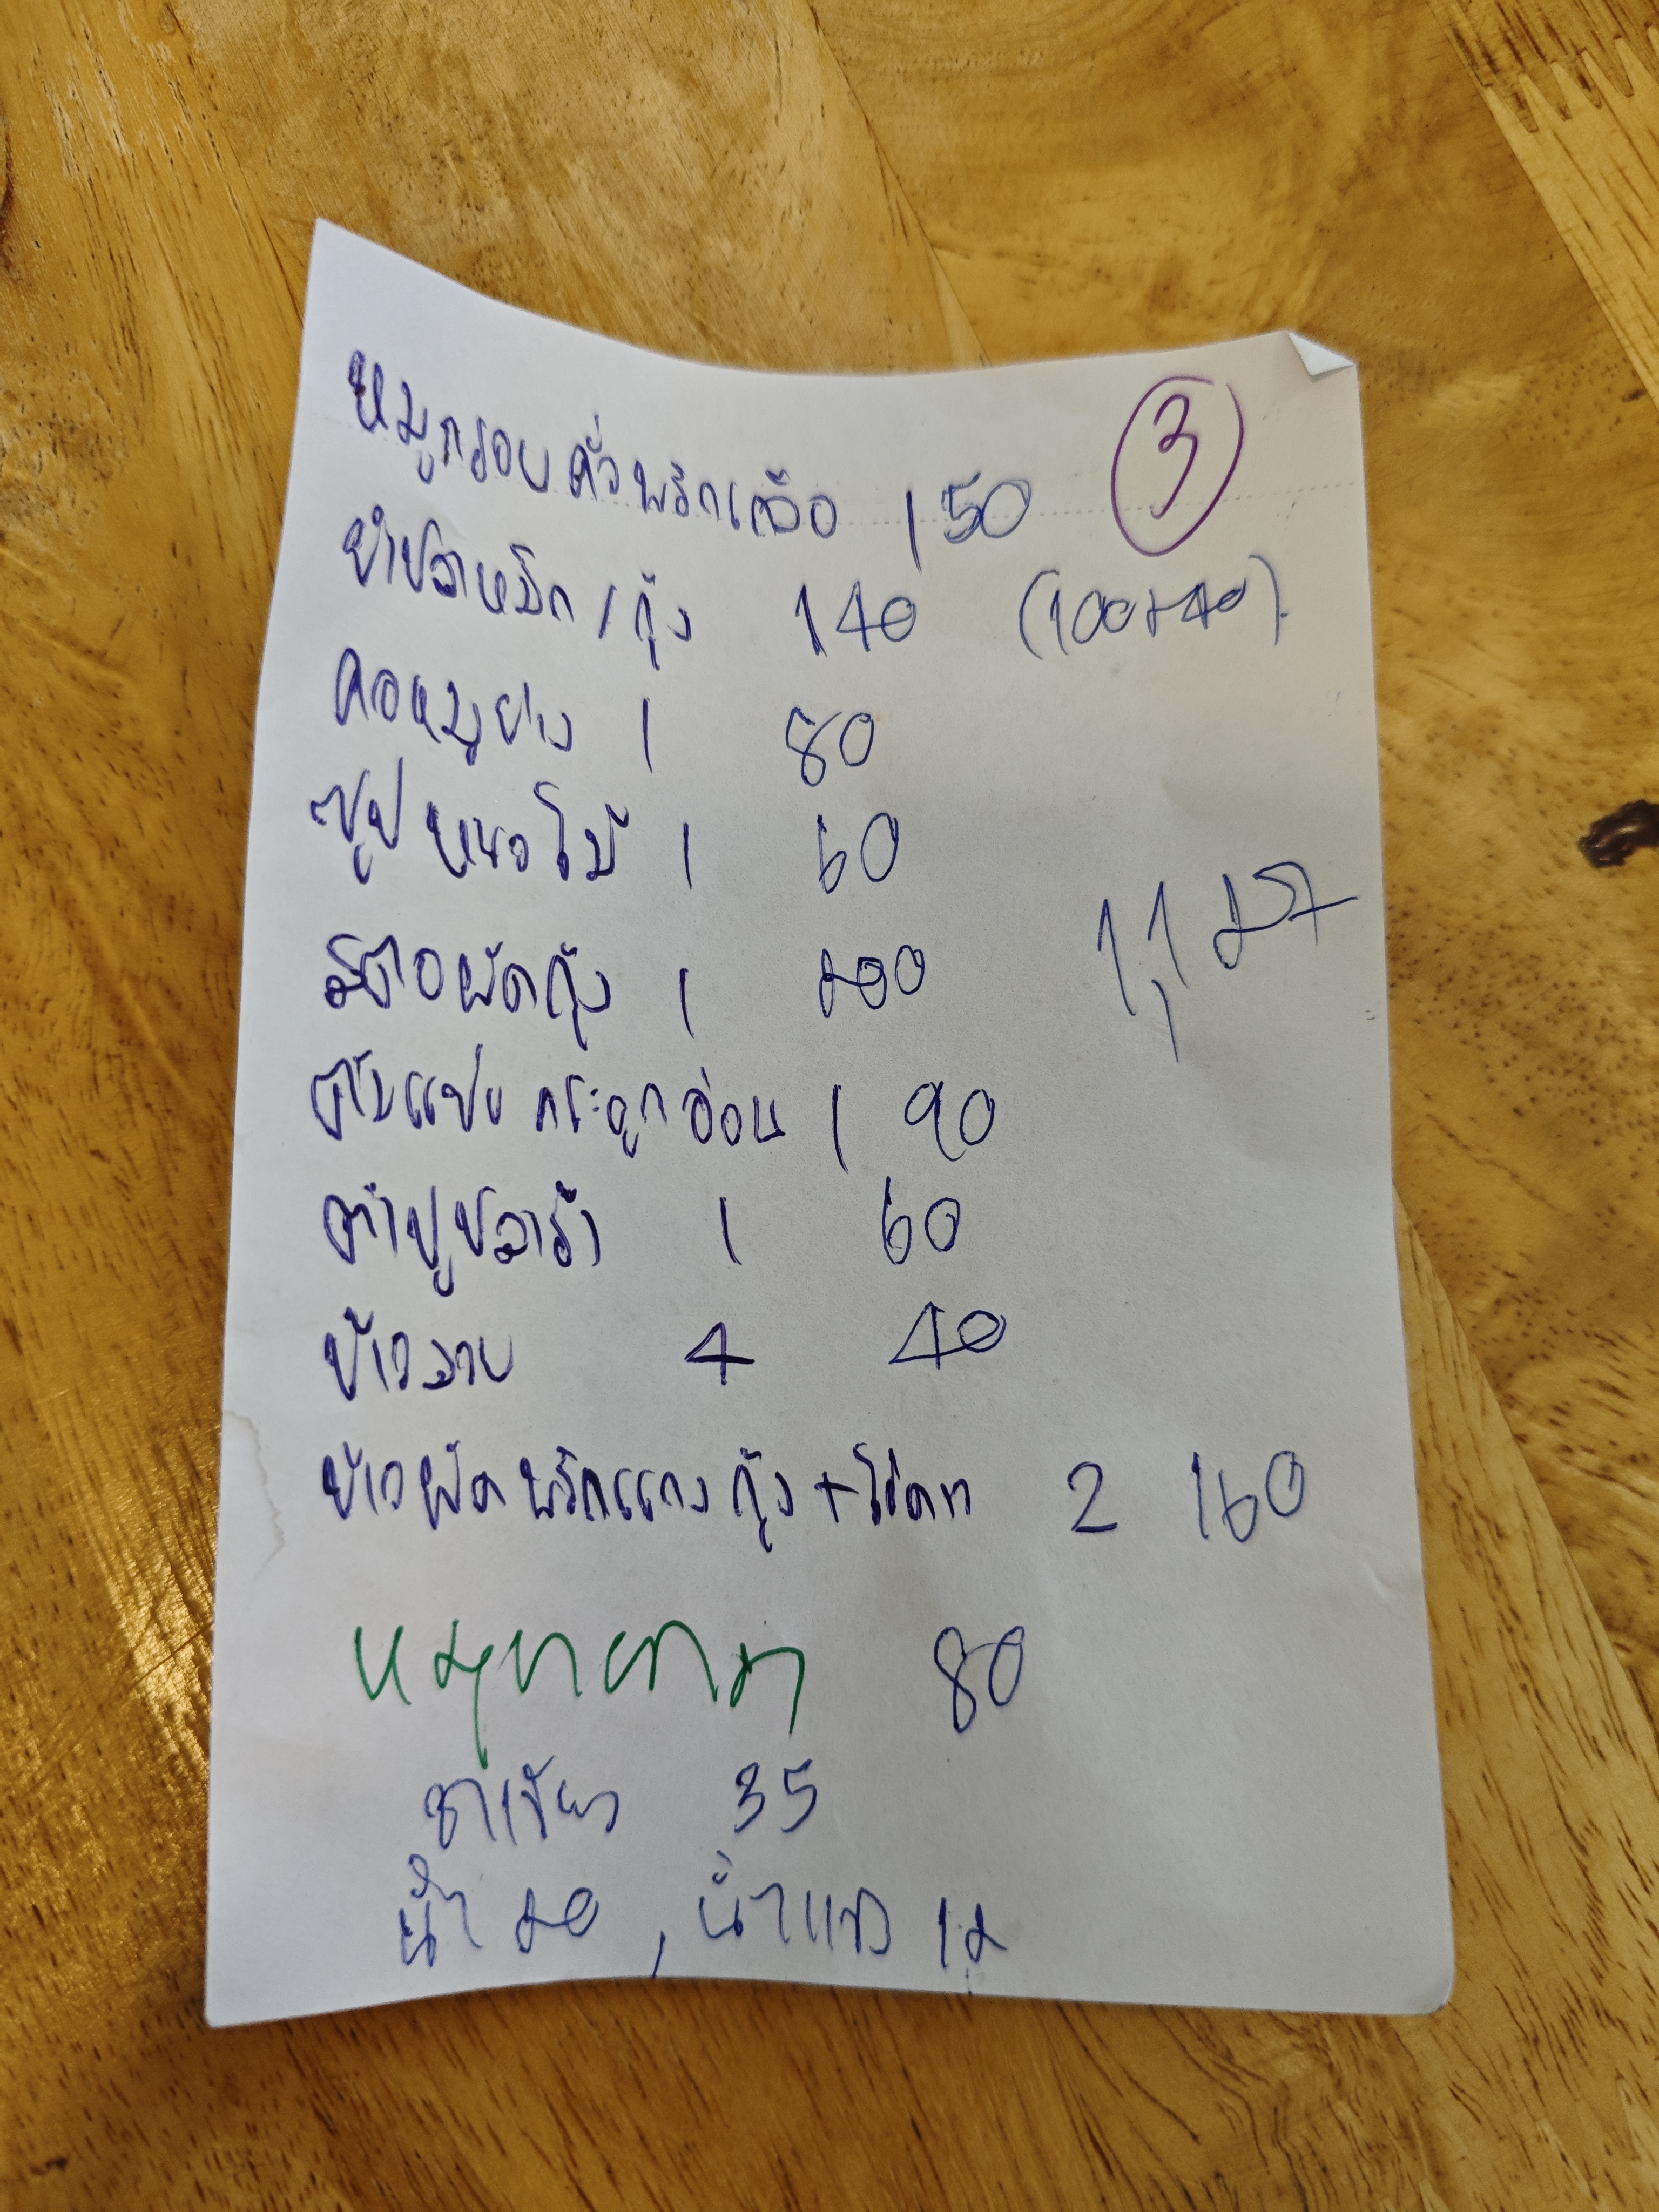 หมูกรอบคั่วพริกเกลือ 150 3
ยำปลาหมึก/กุ้ง 140 (100+40)
คอหมูย่าง 1 80
ซุปหน่อไม้ 1 60
สตอผัดกุ้ง 1 200
1,127
ต้มแซ่บกระดูกอ่อน 1 90
ตำปูปลาร้า 1 60
ข้าวสวย 4 40
ข้าวผัดพริกแกงกุ้ง+ไข่ดาว 2 160
80
ชาเขียว 35
น้ำ 20, น้ำแข็ง 12